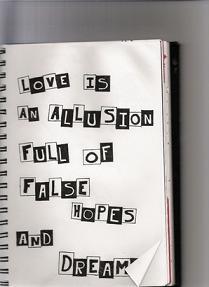 LOVE IS
AN ALLUSION
FULL OF
FALSE
HOPES
AND
DREAM